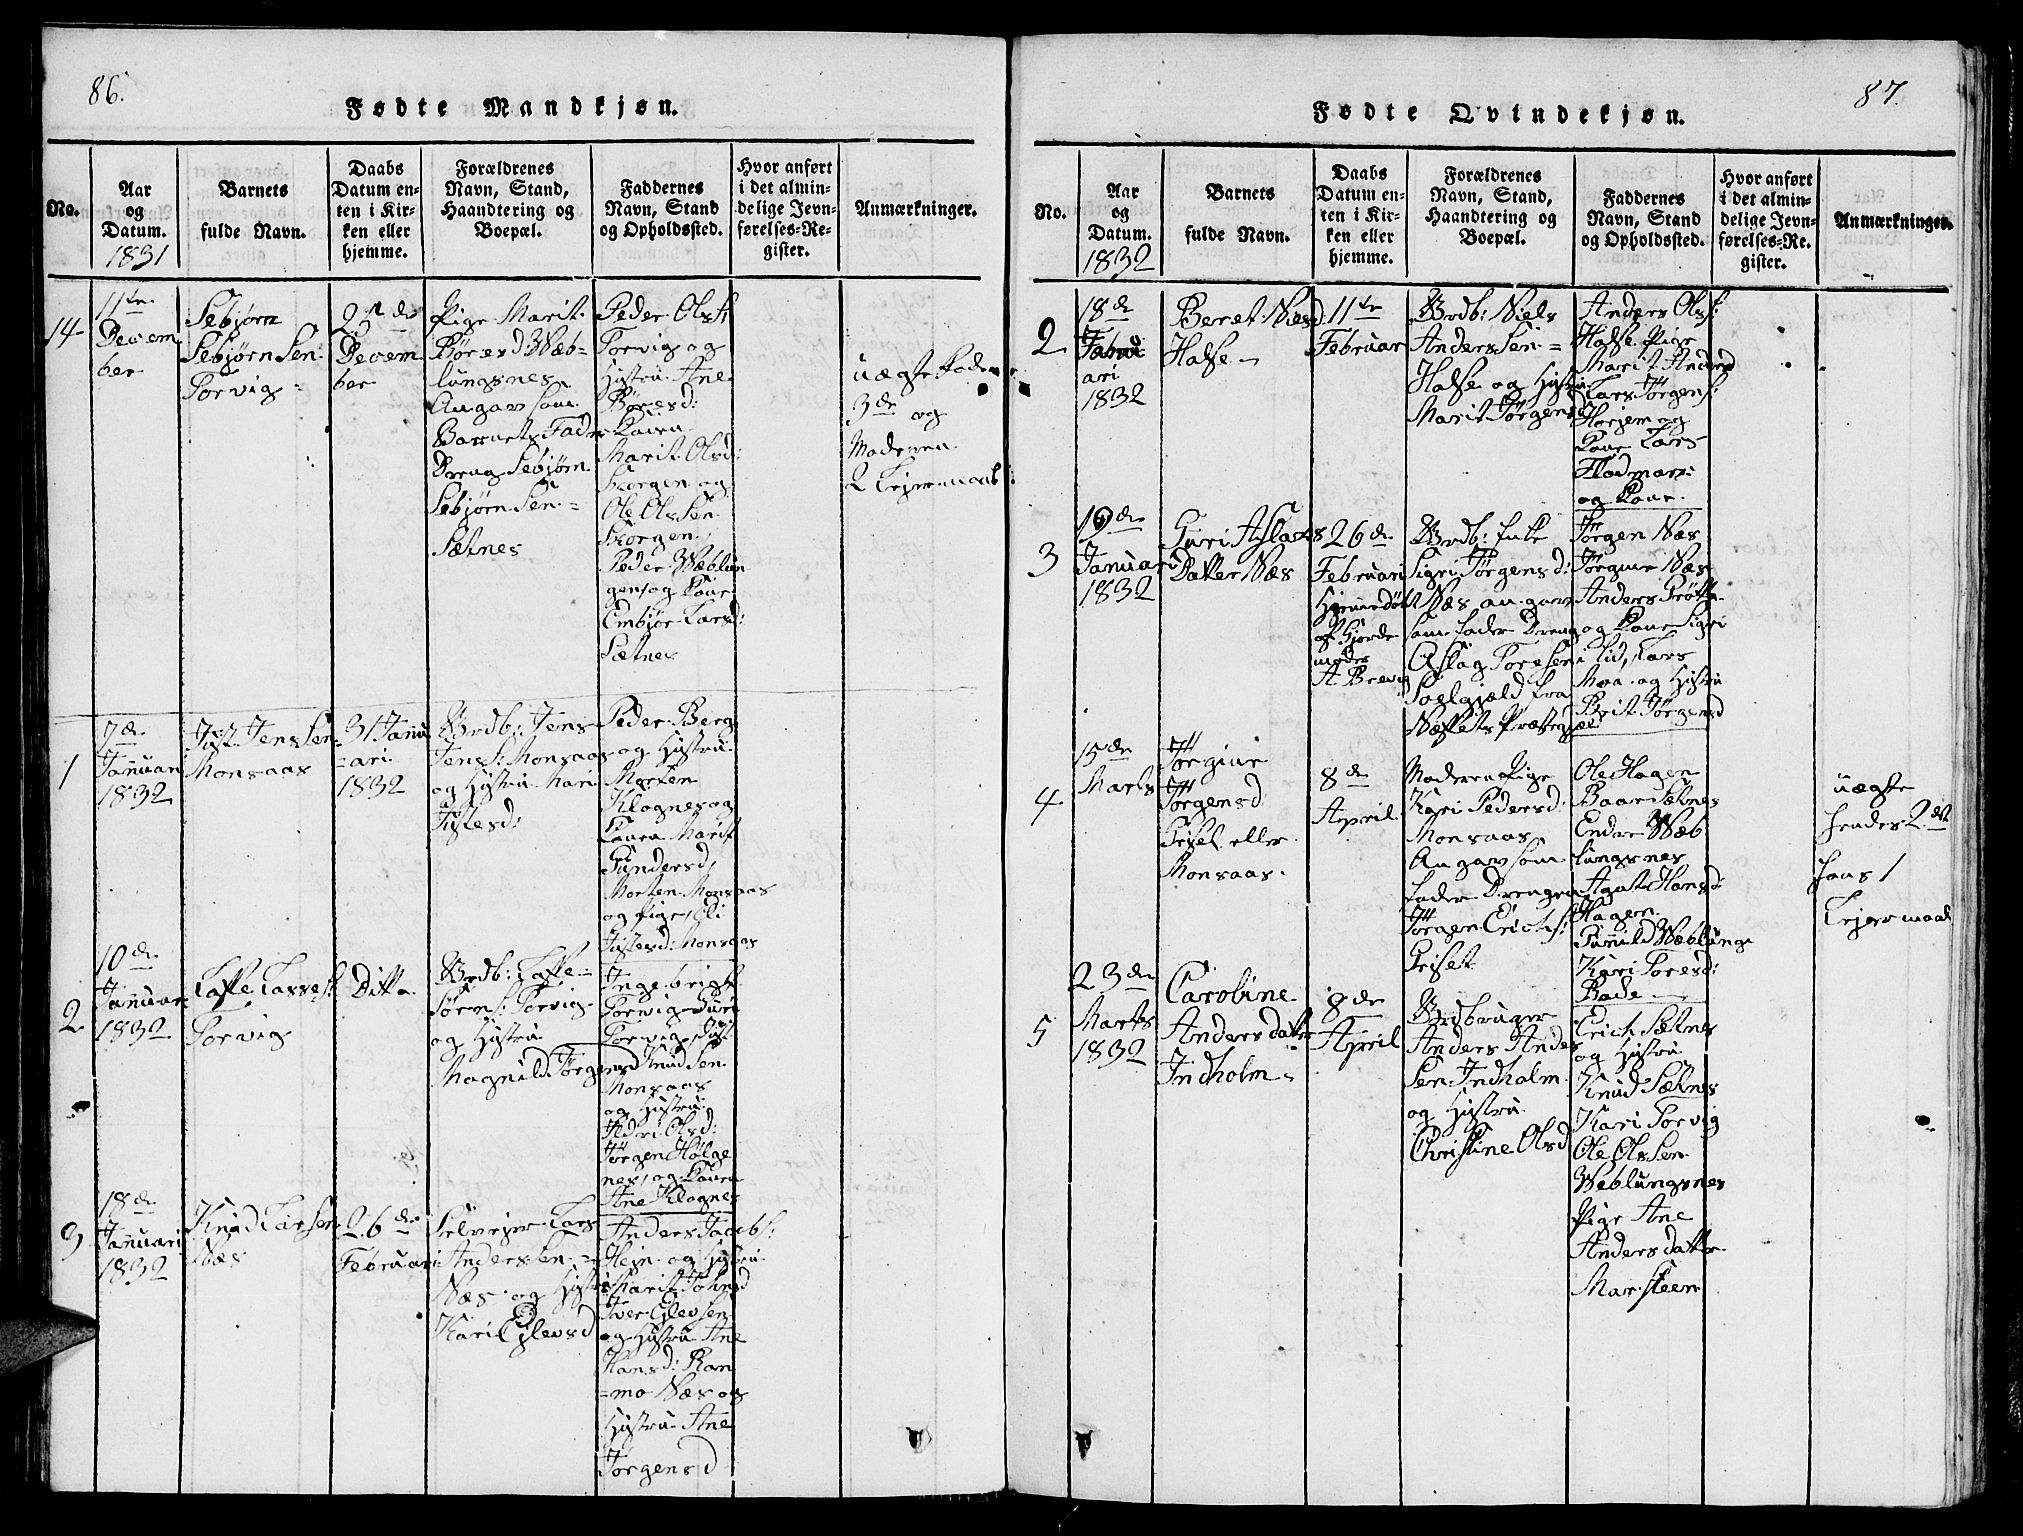 86.
Fødte Mandkjøn.
No.
Aar
og
Datum.
1831
Barnets
fulde Navn.
Daabs
Datum en-
ten i Kir-
ken eller
hjemme.
Forældrenes
Navn, Stand,
Haandtering og
Boepæl.
Faddernes
Navn, Stand
og Opholdssted.
Hvor anført
i det almin-
delige Jevn-
førelses-Re-
gister.
Anmærkninger.
14
11te
Decem
ber
Sebjørn
Sebjørnsen
Torvig
25de
Decem
ber
Pige Marit
Børesd Wæb-
lungsnes
Angav som
Barnets Fader
Dreng Sebjørn
Sebjørnsen
Sætnes
Peder Olss:
Torvig og
Hustru Ane
Børesd:
Konen
Marit Olsd:
Skorgen og
Ole Olssen
Skorgen,
Peder Wæblun
gens og Kone
Embjør Larsd:
Sætnes
uægte Fade
3de og
Moderen
2 Lejermaal
1
7de
Januari
1832
Just Jenssen
Monsaas
31 Janu
ari
1832
Brdb: Jens
Jens: Monsaas
og Hustru Mari
Justesd:
Peder Berg
og Hustru
Morten
Klognes og
Konen Marit
Gundersd,
Morten Monsaas
og Pige, Eli
Justesd: Monsaas
2
10de
Januar
1832
Lasse Lasses:
Torvig
Ditto
Brdb: Lasse
Sørens: Torvig
og Hustru
Magnild Jørgensd
Ingebrigt
Torvig Guri
Torvig, Just
Knudsen
Monsaas
og Hustru
Olsd:
Jørgen Holge
nes, og Konen
Ane Klognes
3
18de
Januari
1832
Knud Larsen
Næs
26de
Februari
Selvejer Lars
Anderssen
Næs og Hustru
Kari Ejlevsd
Anders Jacobs:
Hein og Hustru
Marit Johnsd
Iver Ejlevsen
og Hustru Ane
Hansd: Ran
mo Næs og
Hustru Ane
Jørgensd
87.
Fødte Qvindekjøn.
No.
Aar
og
Datum.
1832
Barnets
fulde Navn.
Daabs
Datum en-
ten i Kir-
ken eller
hjemme.
Forældrenes
Navn, Stand,
Haandtering og
Boepæl.
Faddernes
Navn, Stand
og Opholdssted.
Hvor anført
i det almin-
delige Jevn-
førelses-Re-
gister.
Anmærkninger.
2
18de
ari
1832
Beret Nielsd
Halse
11te
Februar
Brdb: Niels
Anderssen
Halse og Hustru
Marit Jørgensd
Anders Olss:
Halse Pige
Marit Andersd
Lars Jørgens:
Horjem og
Kone Lars
Fladmark
og Kone.
3
19de
Januari
1832
Guri Aslaks
Datter Næs
26de
Februari
Hjemmedøbt
af Gjorde
moder
A Brevig
Brdb: Enke
Sigri Jørgensd:
Næs angav
som Fader Dreng
Aslag Toresen
Soelgjeld fra
Næssets Præstegjæl
Jørgen Næs
Jørgine Næs
Anders Grøtta
og Kone Sigri
Lid, Lars
Moa og Hustru
Brit Jørgensd
4
15de
Marts
Jørgine
Jørgensd
Griset eller
Monsaas.
8de
April
Moderen Pige
Kari Pedersd:
Monsaas
Angav som
Fader Drengen
Jørgen Erichs:
Griset
Ole Hagen
Baar Sætnes
Endre Wæb
lungsnes
Agat Hansd:
Hagen
Gunnild Wæblungs
Kari Toresd:
Bade
uægte
hendes 2det
hans 1
Lejermaal
5
23de
Marts
1832
Caroline
Andersdatter
Indholm
8de
April
Brdbruger
Anders Anders
sen Indholm
og Hustru
Christine Olsd
Erich Sætnes
og Hustru
Knud Sætnes
Kari Torvig
Ole Olssen
Weblungsnes
Pige Ane
Andersdatter
Marsteen